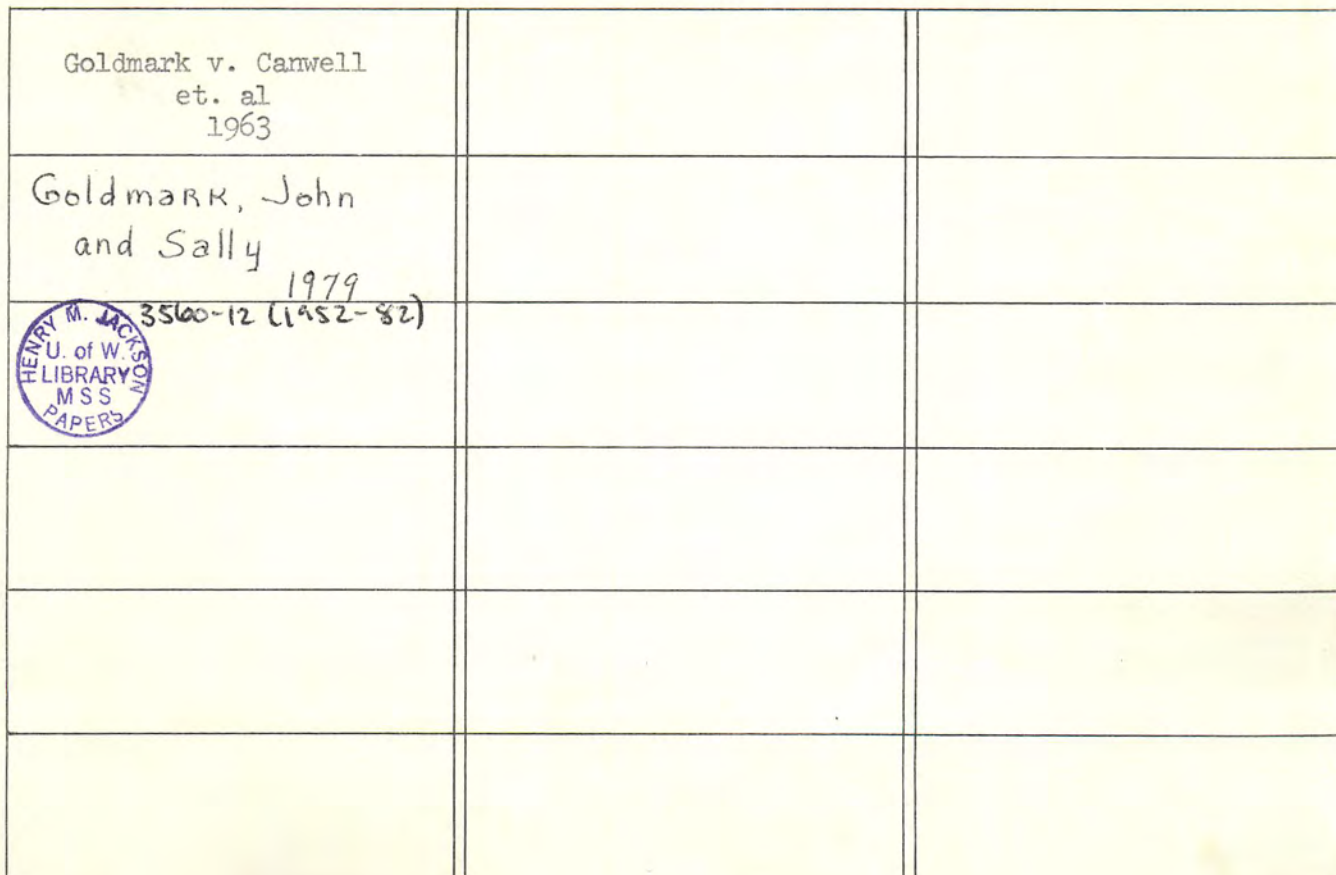 Goldmark v. Canwell
et. al
1963
Goldmark, John
and Sally
1979
3560-12 (1952-82)
HENRY M. JACKSON
U. of W.
LIBRARY
MSS
PAPERS